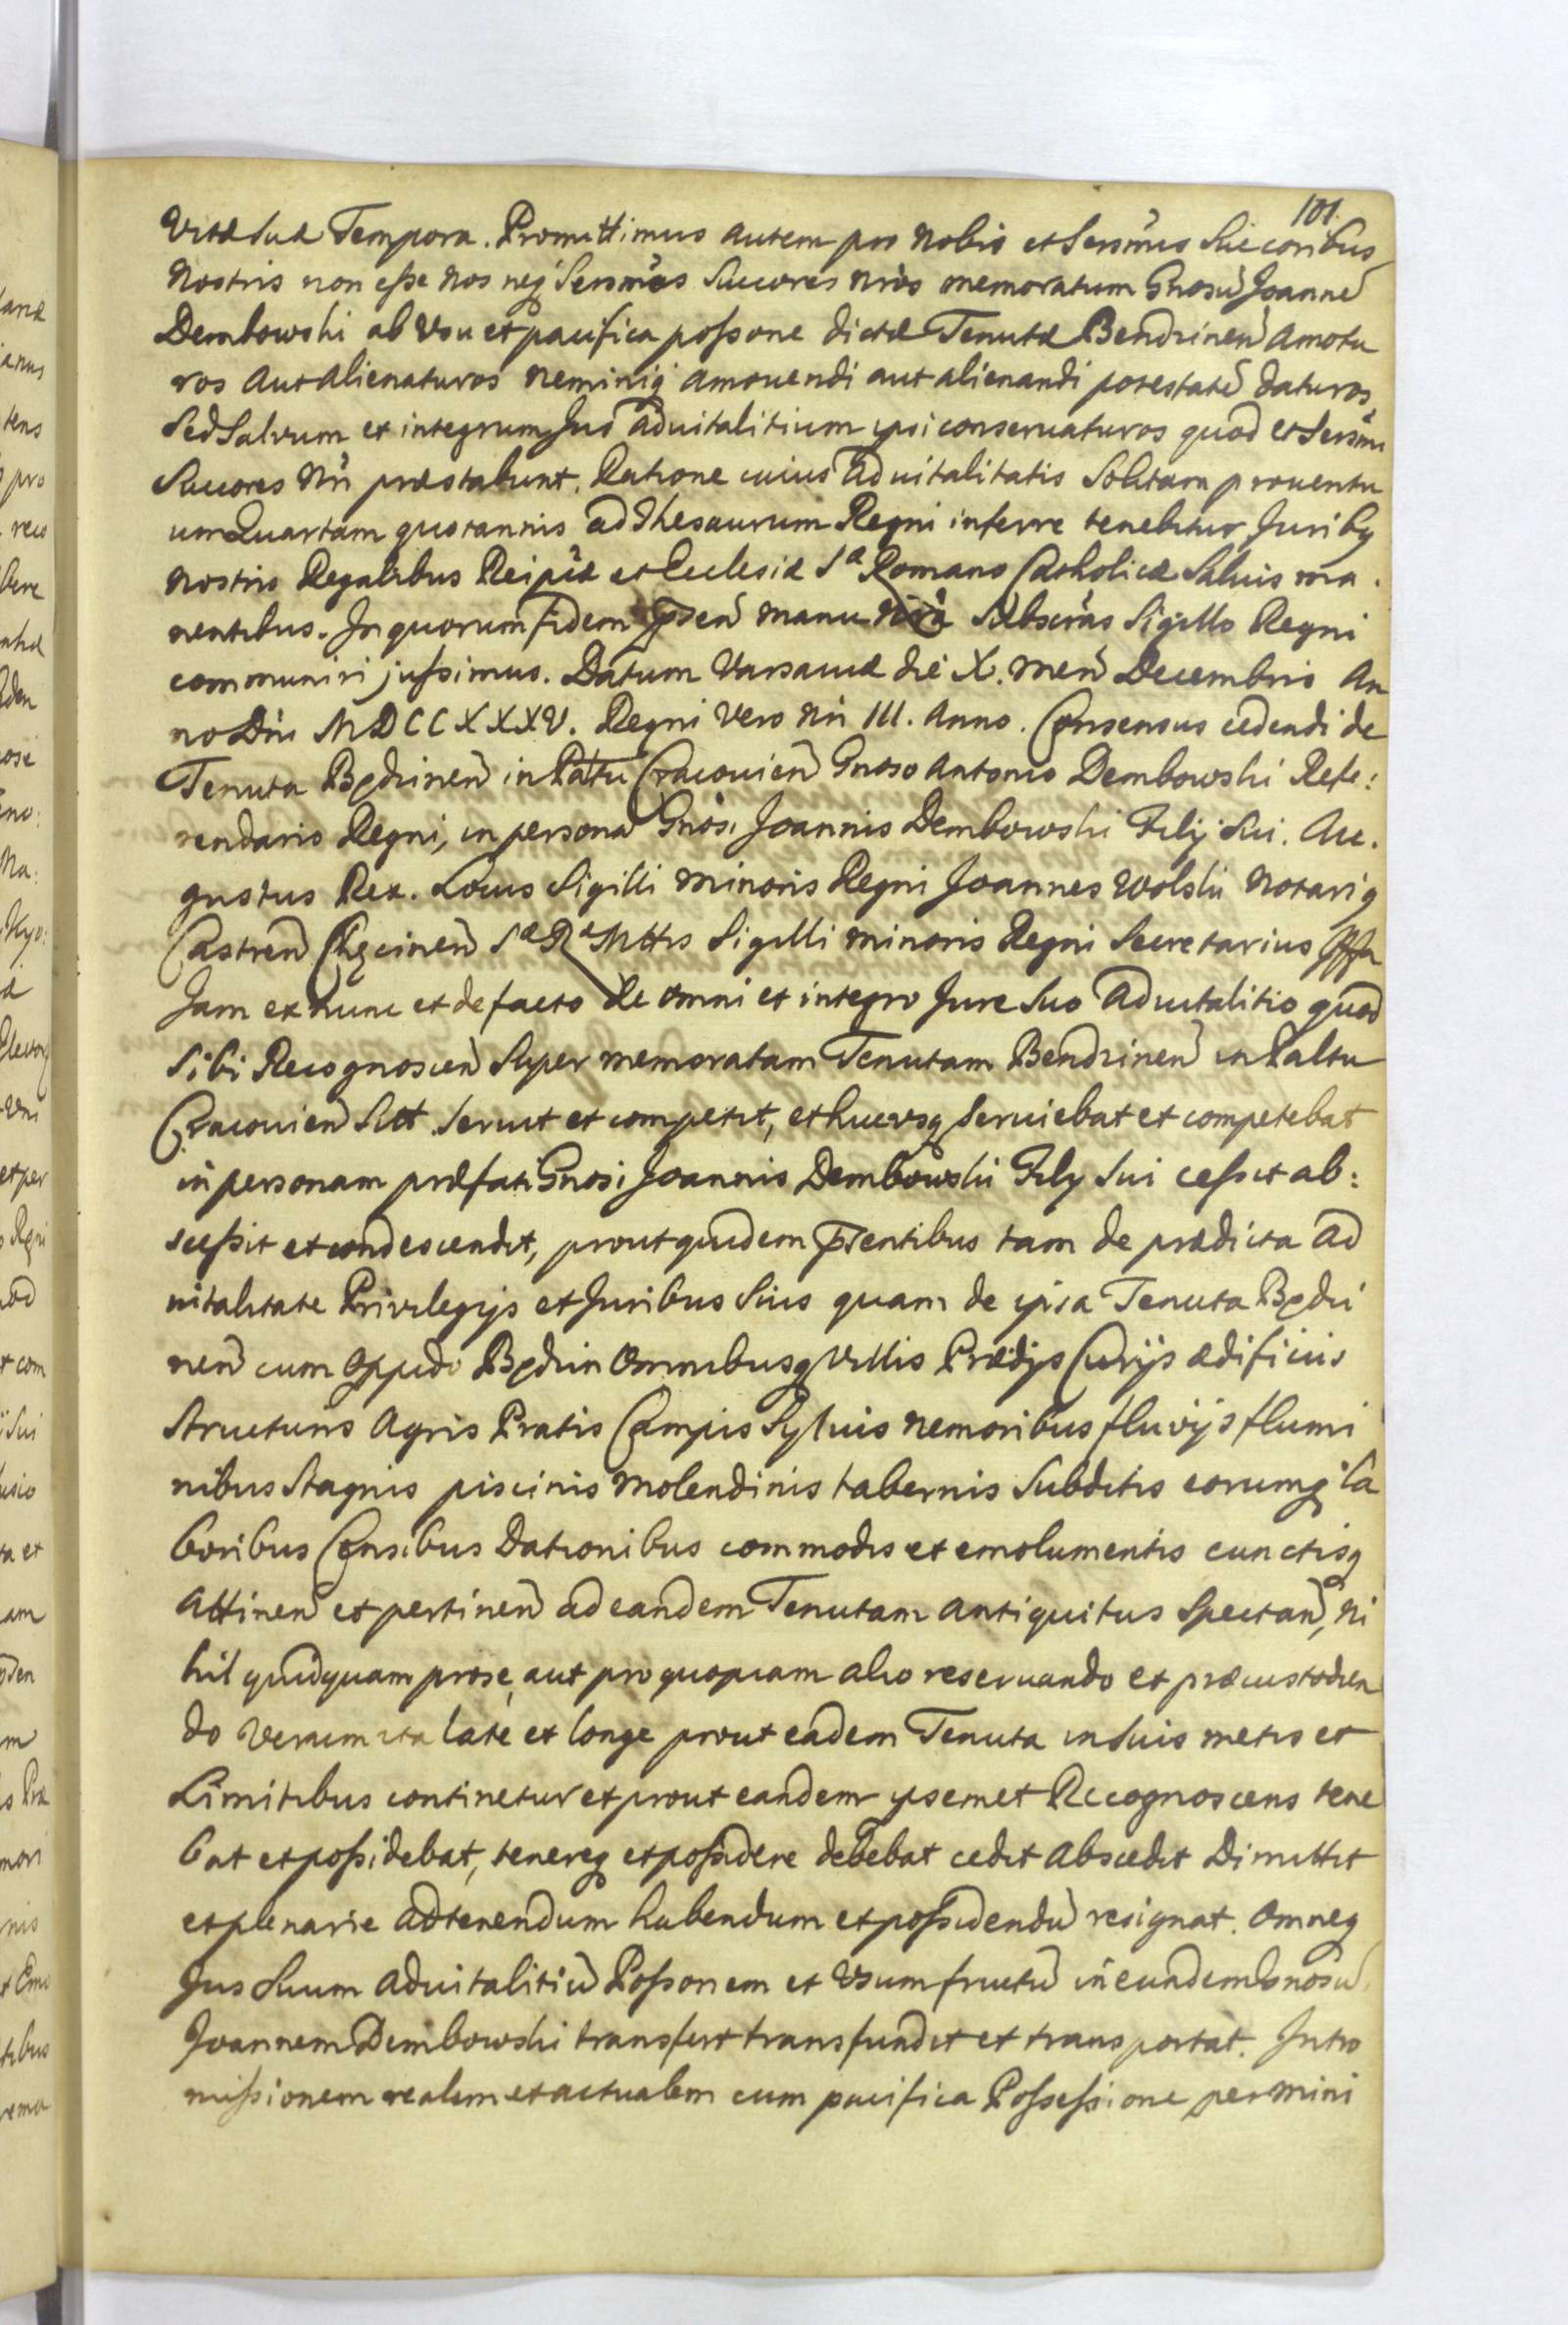 101.
Vitæ suæ Tempora. Promittimus autem pro Nobis et Sersmis Succoribus
Nostris non esse Nos neq Sersmos Succores nros memoratum Gnosu Joanne
Dembowski ab Usu et pacifica possone dictæ Tenutæ Bendzinen amotu
ros aut alienaturos neminiq amouendi aut alienandi potestate daturos
Sed Saluum et integrum Jus aduitalitium ipsi conseruaturos quod et Sersmi
Succores Nri præstabunt. Ratione cuius aduitalitatis Solitam prouentu
um Quartam quotannis ad Thesaurum Regni inferre tenebitur, Juribq
nostris Regalibus Reipcæ et Ecclesiæ Sæ Romano Catholicæ Saluis ma
nentibus. In quorum fidem psen manu nra Subscras Sigillo Regni
communiri jussimus. Datum Varsauiæ die X. men Decembris An
no Dni MDCCXXXV. Regni Vero Nri III. Anno. Consensus cedendi de
Tenuta Będzinen in Paltu Cracouien Gnoso Antonio Dembowski Refe:
rendario Regni, in persona Gnosi Joannis Dembowski Filij Sui. Au.
gustus Rex. Locus Sigilli Minoris Regni Joannes Wolski Notariq
Castren Chęcinen Sæ Ræ Mttis Sigilli minoris Regni Secretarius
Jam ex nunc et de facto de omni et integro Jure Suo Aduitalitio quod
Sibi Recognoscen Super memoratam Tenutam Bendzinen in Paltu
Cracouien Sitt. Seruit et competit, et hucusq Seruiebat et competebat
in personam præfati Gnosi Joannis Dembowski Filij Sui cessit ab:
scessit et condescendit, prout quidem psentibus tam de prædicta ad
uitalitate Privilegijs et Juribus Suis quam de ipsa Tenuta Będzi
nen cum Oppido Będzin Omnibusq Villis Prædijs Curijs ædificiis
Structuris Agris Pratis Campis Syluis Nemoribus fluvijs flumi
nibus Stagnis piscinis Molendinis tabernis Subditis eorumq la
boribus Censibus Dationibus commodis et emolumentis cunctisq
Attinen et pertinen ad eandem Tenutam antiquitus Spectan, Ni
hil quidquam pro se, aut pro quopiam alio reseruando et præcustodien
do Verum ita late et longe prout eadem Tenuta in Suis metis et
Limitibus continetur et prout eandem ipsemet Recognoscens tene
bat et possidebat, tenereq et possidere debebat cedit Abscedit Dimittit
et plenarie ad tenendum habendum et possidendu resignat. Omneq
Jus Suum Aduitalitiu Possonem et Usumfructu in eundem Gnosu
Joannem Dembowski transfert transfundit et transportat. Intro
missionem realem et actualem cum pacifica Possessione per Mini